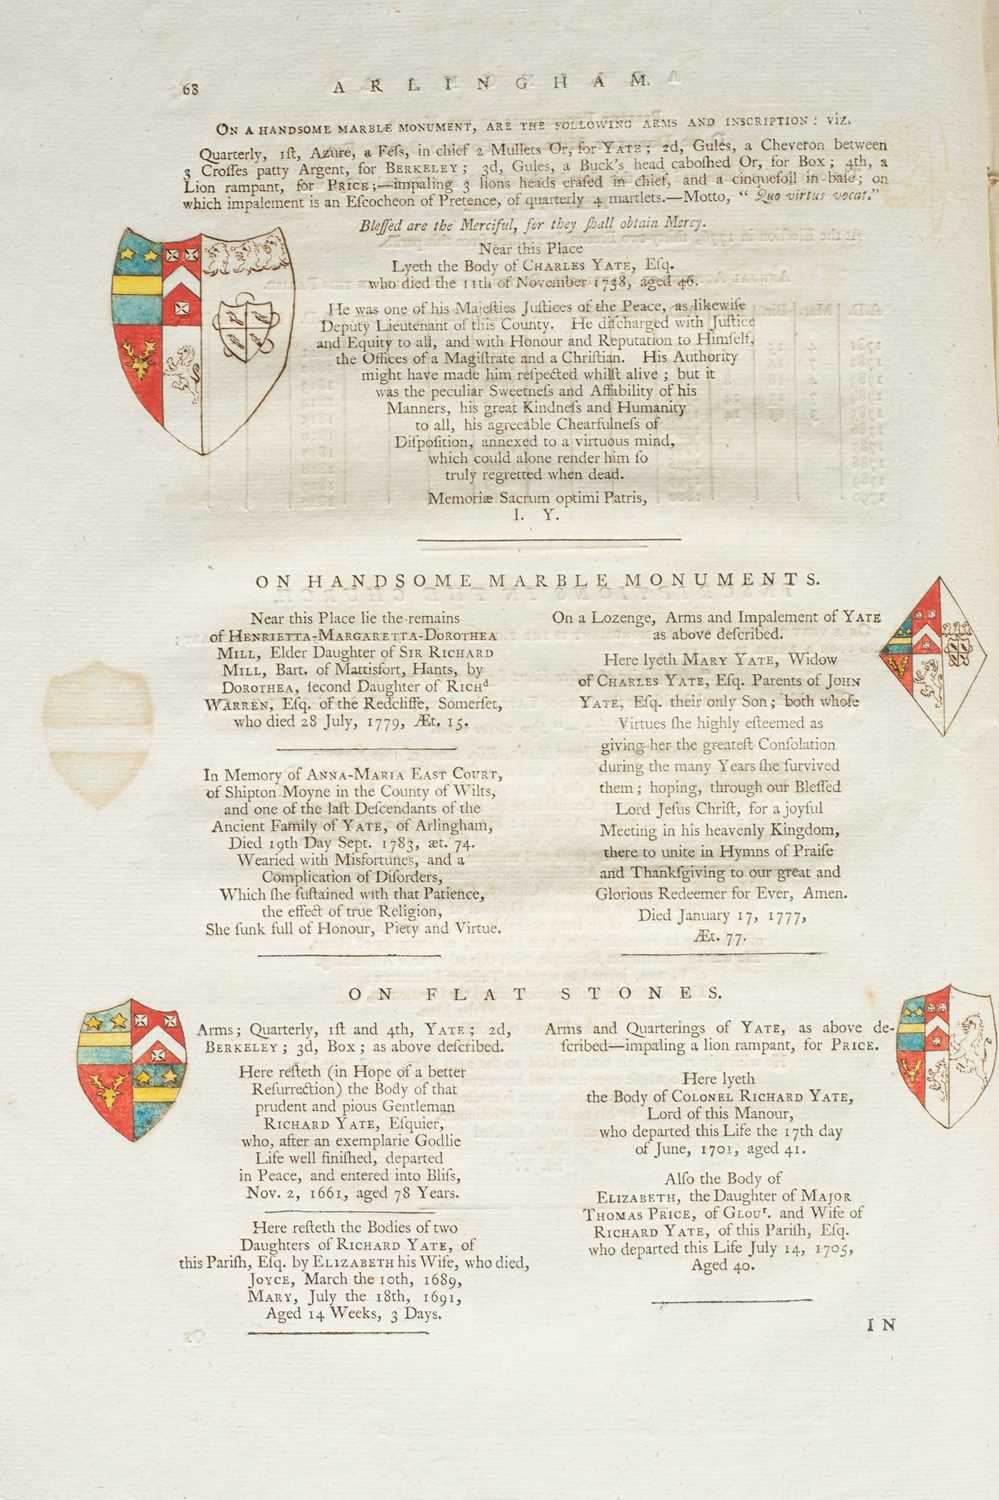 68
ARLINGHAM.
ON A HANDSOME MARBLE MONUMENT, ARE THE FOLLOWING ARMS AND INSCRIPTION: VIZ.
Quarterly, 1ſt, Azure, a Feſs, in chief 2 Mullets Or, for YATE; 2d, Gules, a Cheveron between
3 Croſſes patty Argent, for BERKELEY; 3d, Gules, a Buck's head caboſhed Or, for BOX; 4th, a
Lion rampant, for PRICE;—impaling 3 lions heads eraſed in chief, and a cinquefoil in baſe; on
which impalement is an Eſcocheon of Pretence, of quarterly 4 martlets.—Motto, “ Quo virtus vocat.”
Bleſſed are the Merciful, for they ſhall obtain Mercy.
Near this Place
Lyeth the Body of CHARLES YATE, Eſq.
who died the 11th of November 1738, aged 46.
He was one of his Majeſties Juſtices of the Peace, as likewiſe
Deputy Lieutenant of this County. He diſcharged with Juſtice
and Equity to all, and with Honour and Reputation to Himſelf,
the Offices of a Magiſtrate and a Chriſtian. His Authority
might have made him reſpected whilſt alive; but it
was the peculiar Sweetneſs and Affability of his
Manners, his great Kindneſs and Humanity
to all, his agreeable Chearfulneſs of
Diſpoſition, annexed to a virtuous mind,
which could alone render him ſo
truly regretted when dead.
Memoriæ Sacrum optimi Patris,
I. Y.
ON HANDSOME MARBLE MONUMENTS.
Near this Place lie the remains
of HENRIETTA-MARGARETTA-DOROTHEA
MILL, Elder Daughter of SIR RICHARD
MILL, Bart. of Mattisfort, Hants, by
DOROTHEA, ſecond Daughter of RICHᵈ
WARREN, Eſq. of the Redcliffe, Somerſet,
who died 28 July, 1779, Æt. 15.
In Memory of ANNA-MARIA EAST COURT,
of Shipton Moyne in the County of Wilts,
and one of the laſt Deſcendants of the
Ancient Family of YATE, of Arlingham,
Died 19th Day Sept. 1783, æt. 74.
Wearied with Misfortunes, and a
Complication of Diſorders,
Which ſhe ſuſtained with that Patience,
the effect of true Religion,
She ſunk full of Honour, Piety and Virtue.
On a Lozenge, Arms and Impalement of YATE
as above deſcribed.
Here lyeth MARY YATE, Widow
of CHARLES YATE, Eſq. Parents of JOHN
YATE, Eſq. their only Son; both whoſe
Virtues ſhe highly eſteemed as
giving her the greateſt Conſolation
during the many Years ſhe ſurvived
them; hoping, through our Bleſſed
Lord Jeſus Chriſt, for a joyful
Meeting in his heavenly Kingdom,
there to unite in Hymns of Praiſe
and Thankſgiving to our great and
Glorious Redeemer for Ever, Amen.
Died January 17, 1777,
Æt. 77.
ON FLAT STONES.
Arms; Quarterly, 1ſt and 4th, YATE; 2d,
BERKELEY; 3d, BOX; as above deſcribed.
Here reſteth (in Hope of a better
Reſurrection) the Body of that
prudent and pious Gentleman
RICHARD YATE, Eſquier,
who, after an exemplarie Godlie
Life well finiſhed, departed
in Peace, and entered into Bliſs,
Nov. 2, 1661, aged 78 Years.
Here reſteth the Bodies of two
Daughters of RICHARD YATE, of
this Pariſh, Eſq. by ELIZABETH his Wife, who died,
JOYCE, March the 10th, 1689,
MARY, July the 18th, 1691,
Aged 14 Weeks, 3 Days.
Arms and Quarterings of YATE, as above de-
ſcribed—impaling a lion rampant, for PRICE.
Here lyeth
the Body of COLONEL RICHARD YATE,
Lord of this Manour,
who departed this Life the 17th day
of June, 1701, aged 41.
Alſo the Body of
ELIZABETH, the Daughter of MAJOR
THOMAS PRICE, of GLOUʳ. and Wife of
RICHARD YATE, of this Pariſh, Eſq.
who departed this Life July 14, 1705,
Aged 40.
IN